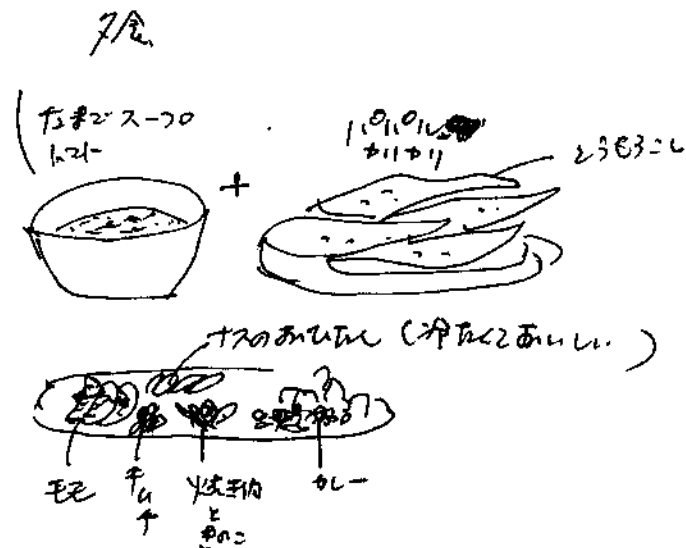 夕食
たまごスープ
トマト
+
パリパリ
カリカリ
とうもろこし
ナスのおひたし（冷たくておいしい）
モモ
キムチ
焼き肉
と
きのこ
カレー